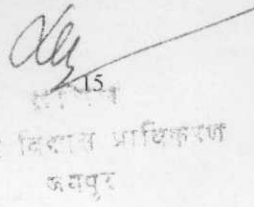 15
सचिव
विकास प्राधिकरण
जयपुर